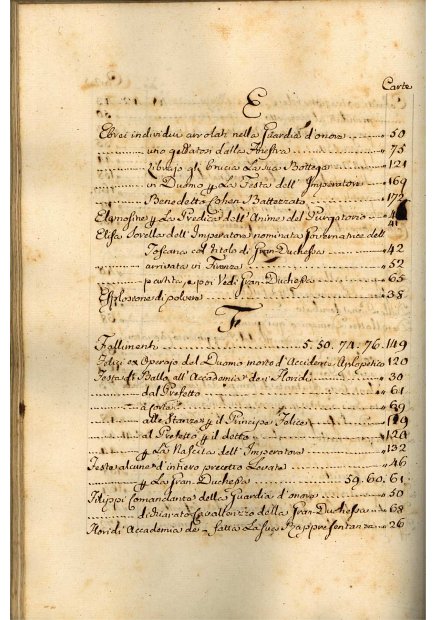 Carte
E
Ebrei individui arrolati nella Guardia d'onore " 50
uno gettatosi dalla finestra " 75
Librajo gli brucia La sua Bottega " 121
in Duomo p La Festa dell'Imperatore " 169
Benedetta Cohen Battezzata " 172
Elemosine p La Predica dell'Anime del Purgatorio "
Elisa Sorella dell'Imperatore nominata Governatrice dell 41
Toscana col titolo di Gran-Duchessa " 42
arrivata in Firenze " 52
partita, e poi Vedi Gran-Duchessa " 65
Esplosione di polvere " 38
F
Fallimenti 5. 50. 74. 76. 149
ex Operajo del Duomo morto d'Accidente Apopletico 120
Festa di Ballo all'Accademia de'i Floridi " 30
dal Prefetto " 61
a Corte " 69
alle Stanze p il Principe Felice "
al Prefetto p il detto " 126
p La Nascita dell'Imperatore " 132
Feste alcune d'intiero precetto Levate " 46
p La Gran Duchessa 59. 60. 61
Filippi Comandante della Guardia d'onore " 50
dichiarato Cavallerizzo della Gran-Duchessa " 68
Floridi Accademia de - fatta La sua Rappresentanza " 26